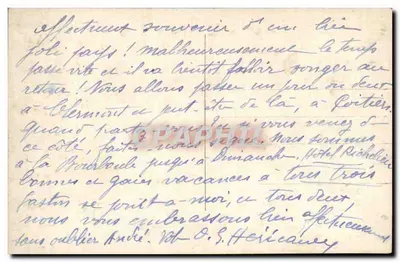 affectueux souvenir d'un bien
joli pays! malheureusement le temps
passe vite et il va bientôt falloir songer au
retour! Nous allons passer un jour ou deux
à Clermont et peut être de là, à Poitiers
quand partez vous? si vous venez de
ce côté, faites nous signe. Nous sommes
à la Bourboule jusqu'à Dimanche, Hôtel Richelieu
bonnes et gaies vacances à tous trois
Gaston se joint à moi, et tous deux
nous vous embrassons bien affectueusement
sans oublier André.